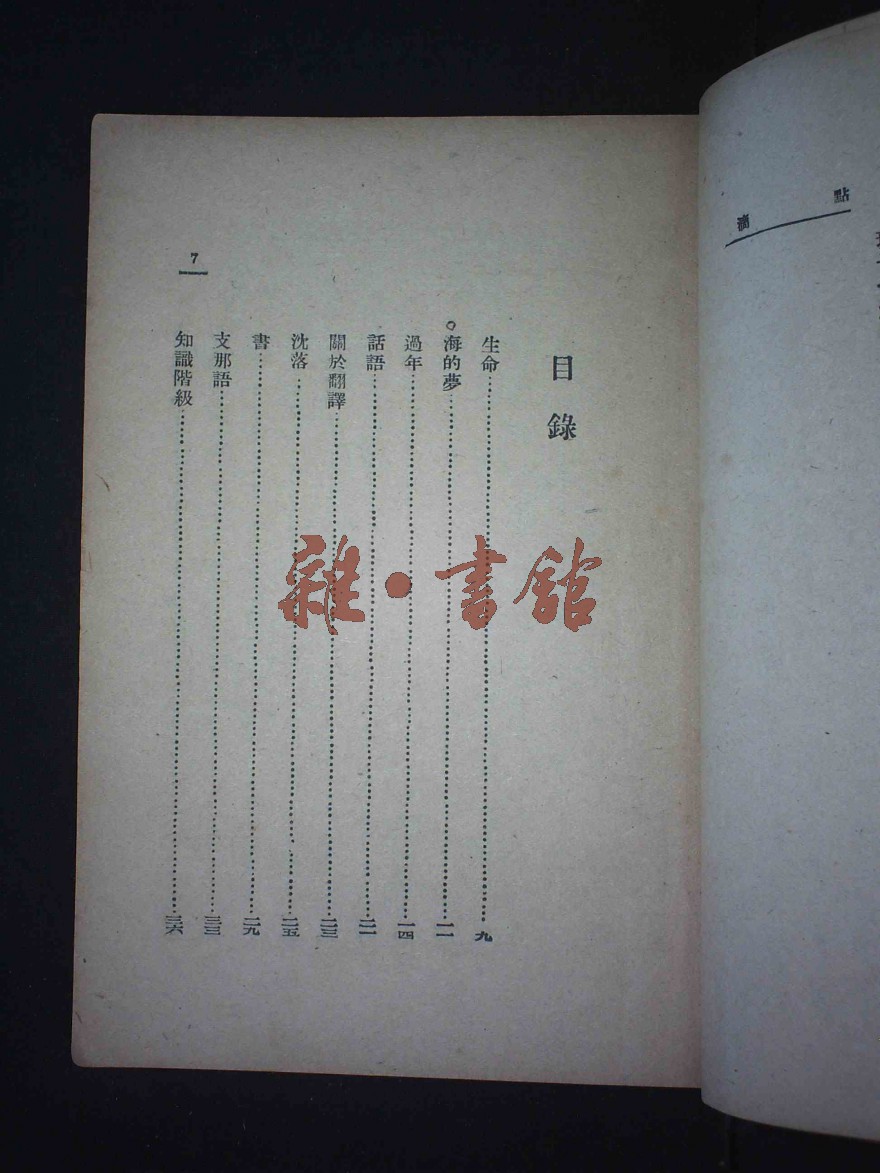 點滴
目錄
生命……九
海的夢……一一
過年……一四
話語……二一
關於翻譯……二三
沈落……二五
書……二九
支那語……三三
知識階級……三六
7
雜·書館